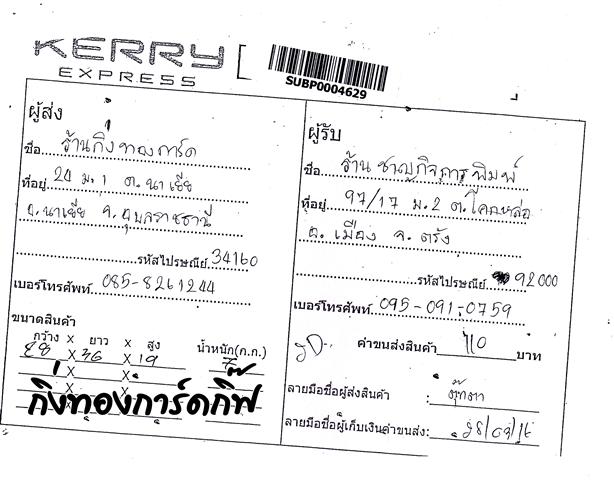 KERRY
EXPRESS
SUBP0004629
ผู้ส่ง
ชื่อ ร้านกิ่งทองการ์ด
ที่อยู่ 24 ม.1 ต.นาเยีย
อ.นาเยีย จ.อุบลราชธานี
รหัสไปรษณีย์ 34160
เบอร์โทรศัพท์ 085-8261244
ขนาดสินค้า
กว้าง X ยาว X สูง น้ำหนัก(ก.ก.)
28 X 36 X 19 7
X X
X X
กิ่งทองการ์ดกิฟ
ผู้รับ
ชื่อ ร้าน ชาญกิจการพิมพ์
ที่อยู่ 97/17 ม.2 ต.โคกหล่อ
อ. เมือง จ. ตรัง
รหัสไปรษณีย์ 92000
เบอร์โทรศัพท์ 095-091-0759
ค่าขนส่งสินค้า 110 บาท
ลายมือชื่อผู้ส่งสินค้า : ตุ๊กตา
ลายมือชื่อผู้เก็บเงินค่าขนส่ง: